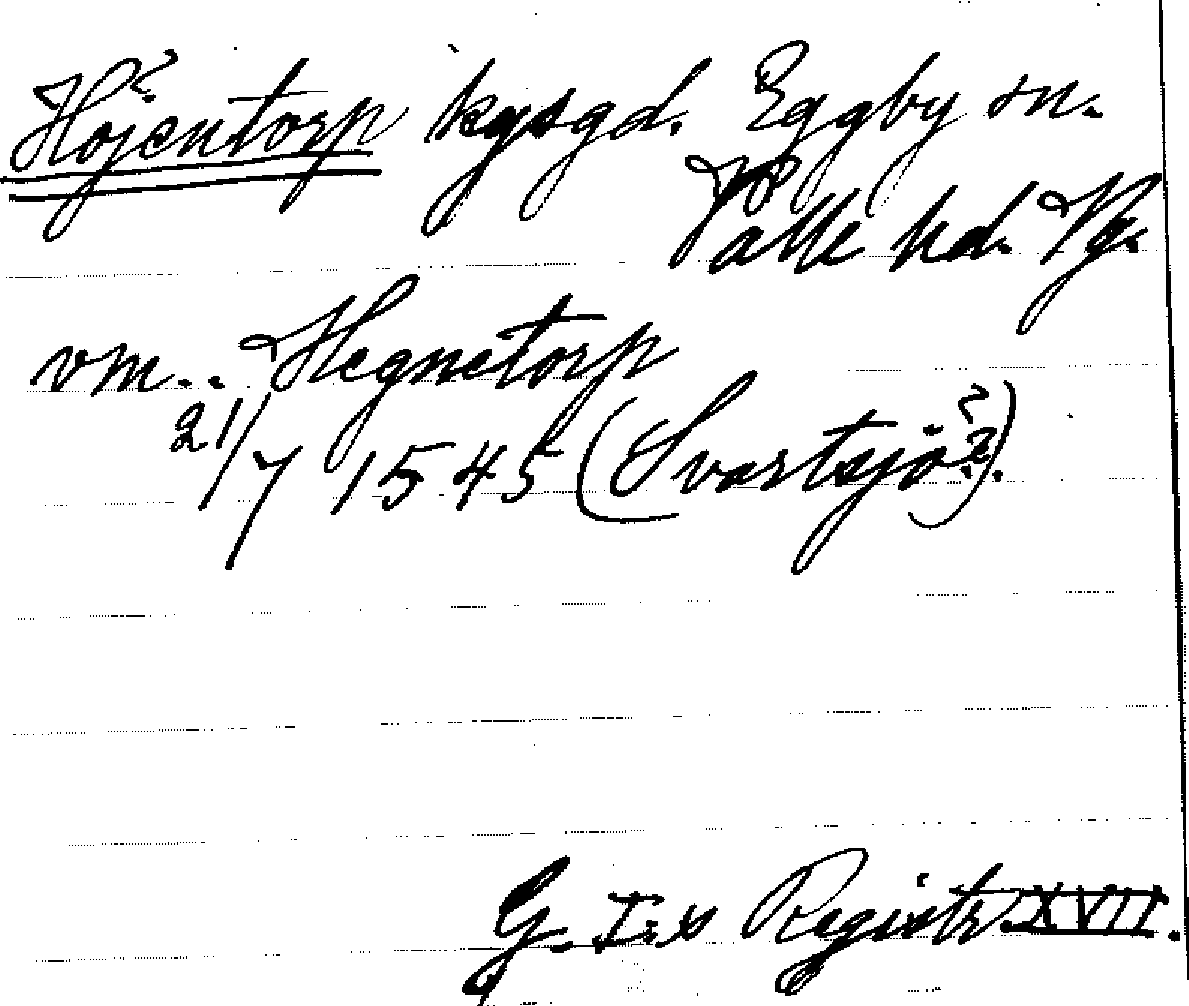 Höjentorp kgsgd. Eggby sn.
Valle hd. Vg.
vm.. Hegnetorp
21/7 1545 (Svartsjö??).
G. I:s Registr. XVII.